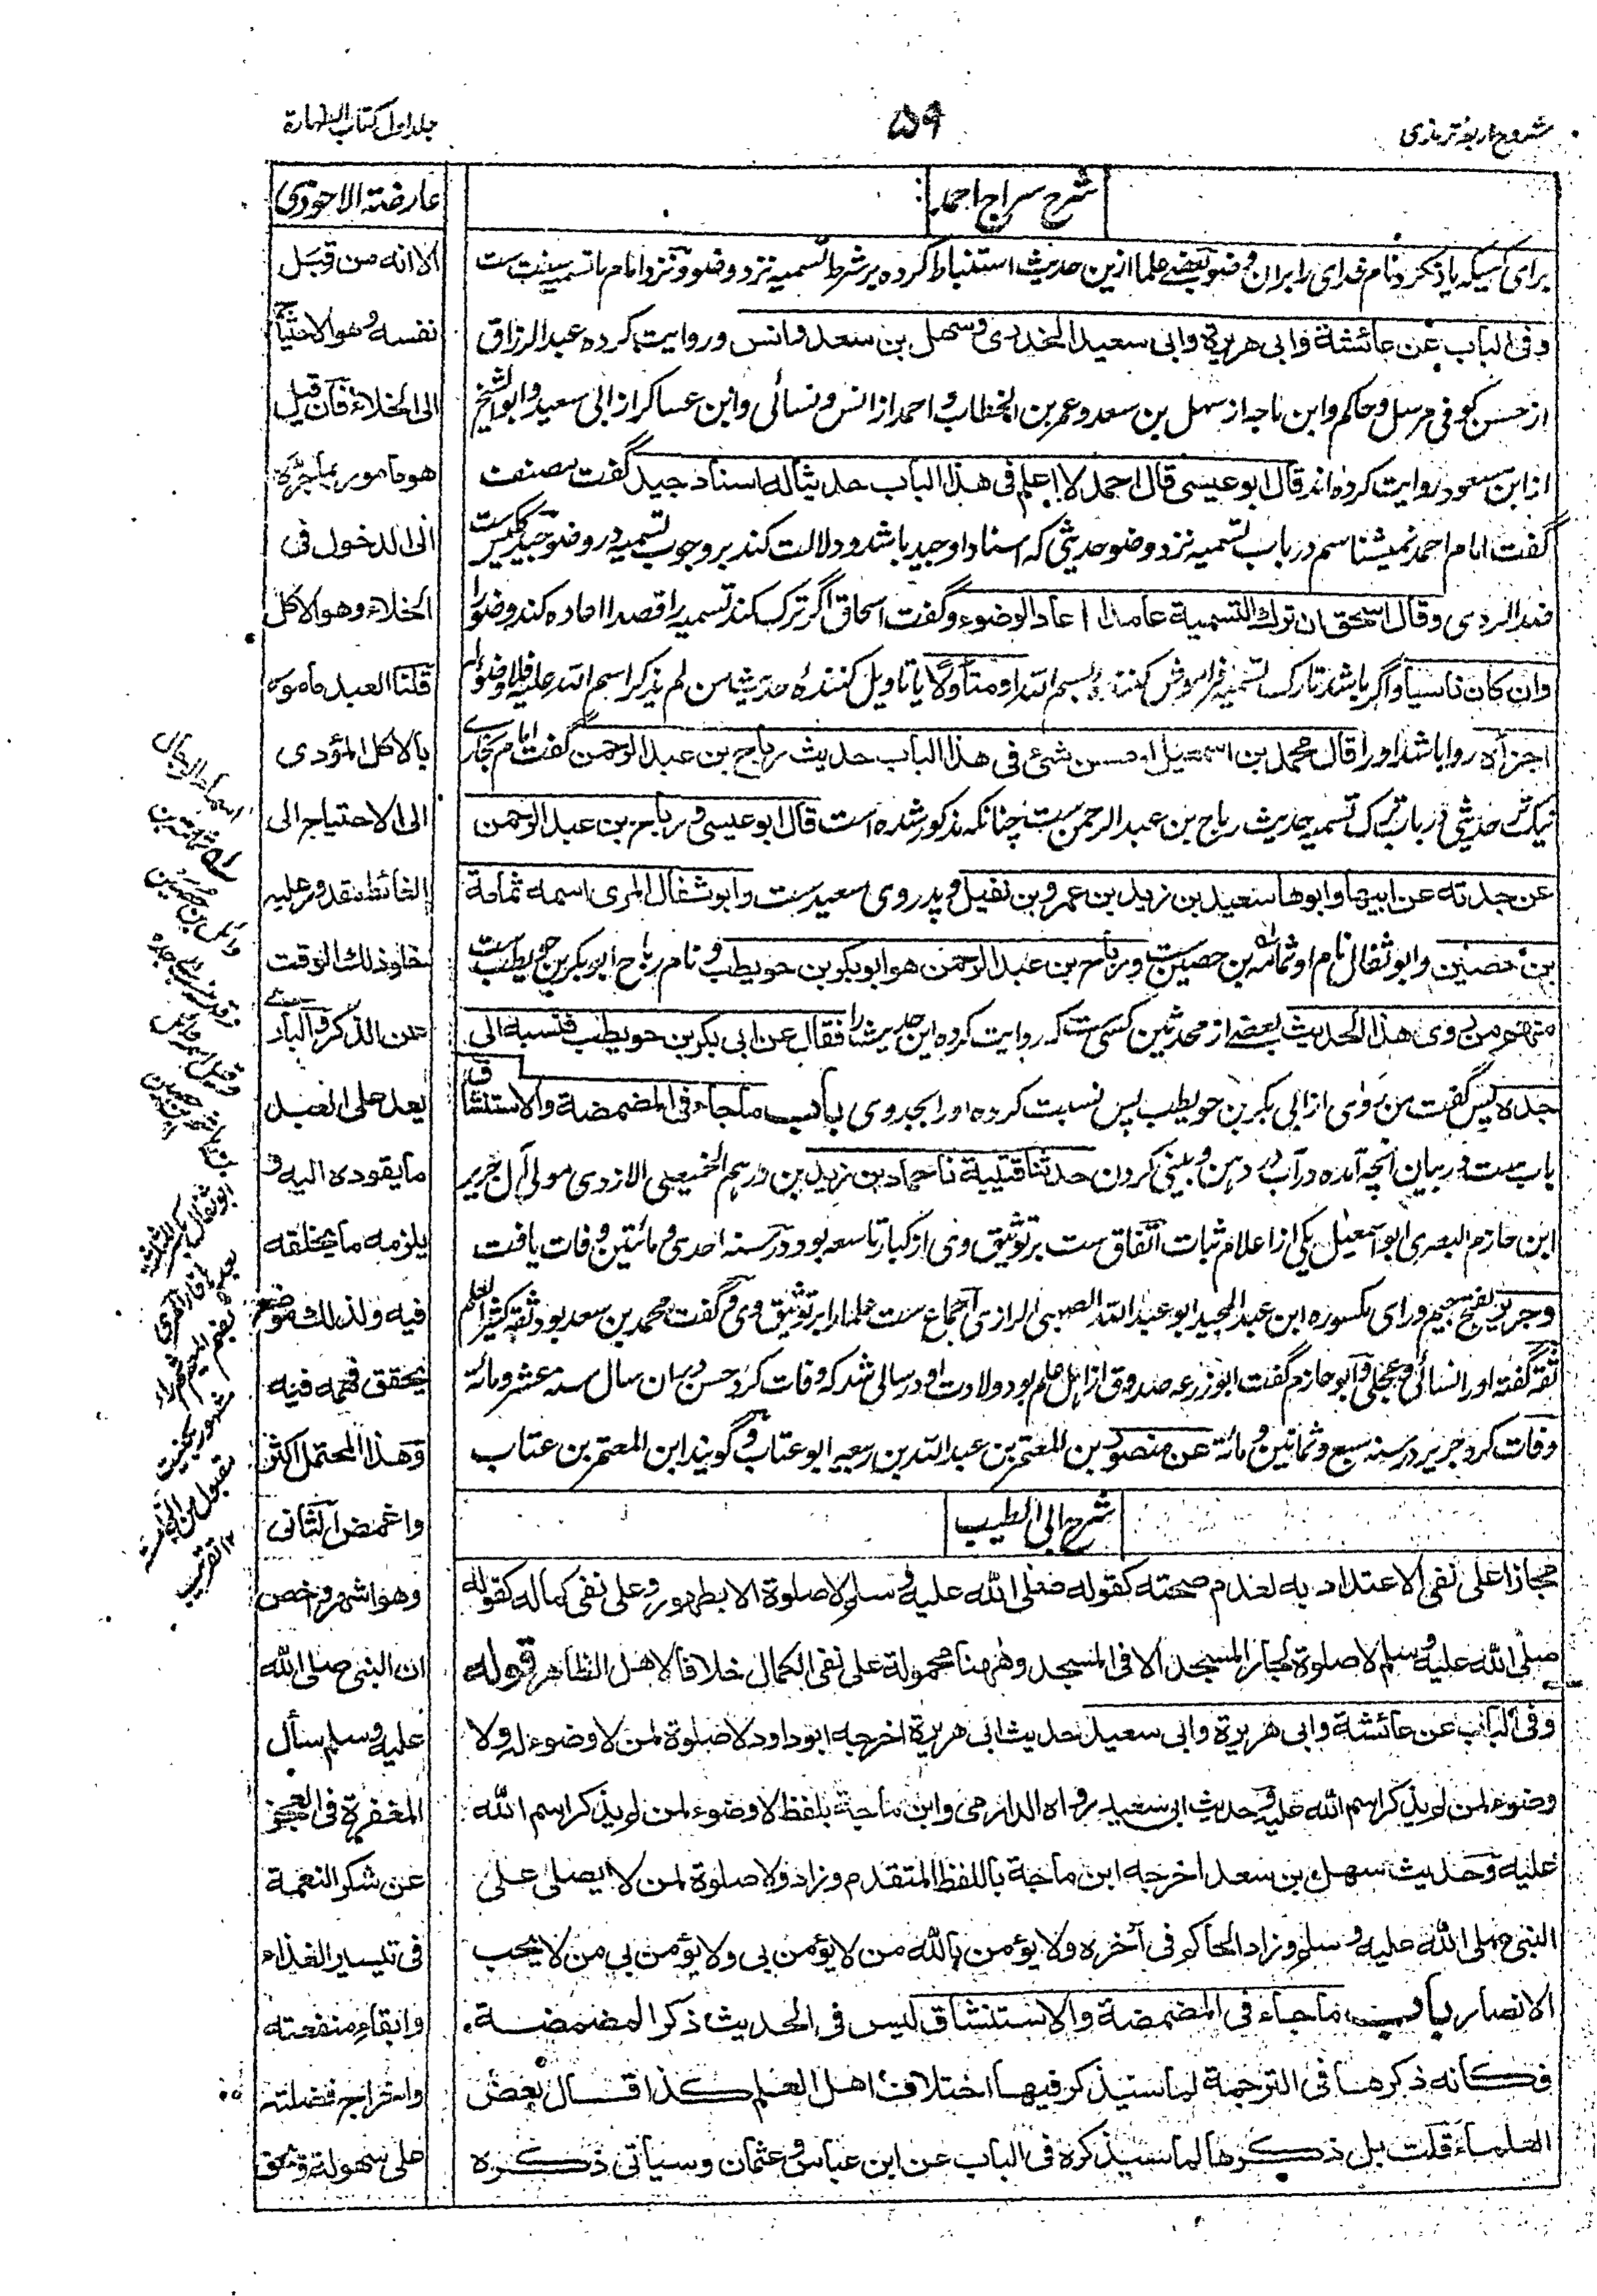 شروح اربعہ ترمذی
۵۹
جلد اول کتاب الطهارة
شرح سراج احمد
برای کسیکه یاد نکرد نام خدای را بران وضو بعضے علما ازین حدیث استنباط کرده بر شرط تسمیه نزد وضو و نزد امام ما تسمیه سنت ست
وفی الباب عن عائشة وابی هریرة وابی سعید الخدری وسهل بن سعد وانس و روایت کرده عبد الرزاق
از حسن کوفی مرسل و حاکم و ابن ماجه از سهل بن سعد و عمر بن الخطاب و احمد از انس و نسائی و ابن عساکر از ابی سعید و ابو الشیخ
از ابن مسعود روایت کرده اند قال ابو عیسی قال احمد لا اعلم فی هذا الباب حدیثا له اسناد جید گفت مصنف
گفت امام احمد نمیشناسم در باب تسمیه نزد وضو حدیثی که اسناد او جید باشد و دلالت کند بر وجوب تسمیه در وضو
وقال اسحق ان ترک التسمیة عامدا اعاد الوضوء و گفت اسحاق اگر ترک کند تسمیه را قصدا اعاده کند وضو را
وان کان ناسیا و اگر باشد تارک تسمیه فراموش کننده بسم الله را او متأولا یا تاویل کننده حدیث من لم یذکر اسم الله علیه فلا وضو له
اجزأه روا باشد او را قال محمد بن اسمعیل احسن شیء فی هذا الباب حدیث رباح بن عبد الرحمن گفت امام بخاری
نیک تر حدیثی در باب ترک تسمیه حدیث رباح بن عبد الرحمن ست چنانکه مذکور شده است قال ابو عیسی و رباح بن عبد الرحمن
عن جدته عن ابیها وابوها سعید بن زید بن عمرو بن نفیل و پدر وی سعید ست وابو ثفال المری اسمه ثمامة
بن حصین و ابو ثفال نام او ثمامه بن حصین ست و رباح بن عبد الرحمن هو ابو بکر بن حویطب و نام رباح ابو بکر بن حویطب ست
منهم من روی هذا الحدیث بعضے از محدثین کسی ست که روایت کرده این حدیث را فقال عن ابی بکر بن حویطب فنسبه الی
جده پس گفت من روی از ابی بکر بن حویطب پس نسبت کرده او را بجد وی باب ماجاء فی المضمضة والاستنشاق
باب ست در بیان آنچه آمده در آب در دهن و بینی کردن حدثنا قتیبة نا حماد بن زید بن درهم الازدی مولی آل جریر
ابن حازم البصری ابو اسمعیل یکی از اعلام ثبات اتفاق ست بر توثیق وی از کبار تاسعه بود در سنه احدی و مائتین وفات یافت
وجریر بفتح جیم و رای مکسوره ابن عبد الحمید ابو عبد الله الضبی الرازی اجماع ست علما را بر توثیق وی و گفت محمد بن سعد بود ثقه کثیر العلم
ثقه گفته او را نسائی و عجلی و ابو حازم گفت ابو زرعه صدوق از اهل علم بود ولادت او در سالی شد که وفات کرد حسن در ان سال سنه عشر ومائة
وفات کرد جریر در سنه سبع وثمانین ومائة عن منصور بن المعتمر بن عبد الله بن ربیعه ابو عتاب و گویند ابن المعتمر بن عتاب
شرح ابی الطیب
مجازا علی نفی الاعتداد به لعدم صحته کقوله صلی الله علیه وسلم لا صلوة الا بطهور وعلی نفی کماله کقوله
صلی الله علیه وسلم لا صلوة لجار المسجد الا فی المسجد وههنا محمولة علی نفی الکمال خلافا لاهل الظاهر قوله
وفی الباب عن عائشة وابی هریرة وابی سعید حدیث ابی هریرة اخرجه ابو داود لا صلوة لمن لا وضوء له ولا
وضوء لمن لم یذکر اسم الله علیه وحدیث ابی سعید رواه الدارمی وابن ماجة بلفظ لا وضوء لمن لم یذکر اسم الله
علیه وحدیث سهل بن سعد اخرجه ابن ماجة باللفظ المتقدم وزاد ولا صلوة لمن لا یصلی علی
النبی صلی الله علیه وسلم وزاد الحاکم فی آخره ولا یؤمن بالله من لا یؤمن بی ولا یؤمن بی من لا یحب
الانصار باب ماجاء فی المضمضة والاستنشاق لیس فی الحدیث ذکر المضمضة
فکانه ذکرها فی الترجمة لما سیذکر فیها اختلاف اهل العلم کذا قال بعض
العلماء قلت بل ذکرها لما سیذکره فی الباب عن ابن عباس وعثمان وسیاتی ذکره
عارضة الاحوذی
الا انه من قبل
نفسه وهو الاحتیاج
الی الخلاء فان قیل
هو مامور بما جره
الی الدخول فی
الخلاء وهو الاکل
قلنا العبد مامور
بالاکل المؤدی
الی الاحتیاج الی
الغائط مقدور علیه
خلو ذلک الوقت
عن الذکر والباری
یعد علی العبد
ما یقوده الیه و
یلزمه ما یخلقه
فیه ولذلک موضع
یحقق فهمه فیه
وهذا المحتمل اکثر
واغمض الثانی
وهو اشهر واخص
ان النبی صلی الله
علیه وسلم سأل
المغفرة فی العجز
عن شکر النعمة
فی تیسیر الغذاء
وابقاء منفعته
واخراج فضلته
علی سهولة